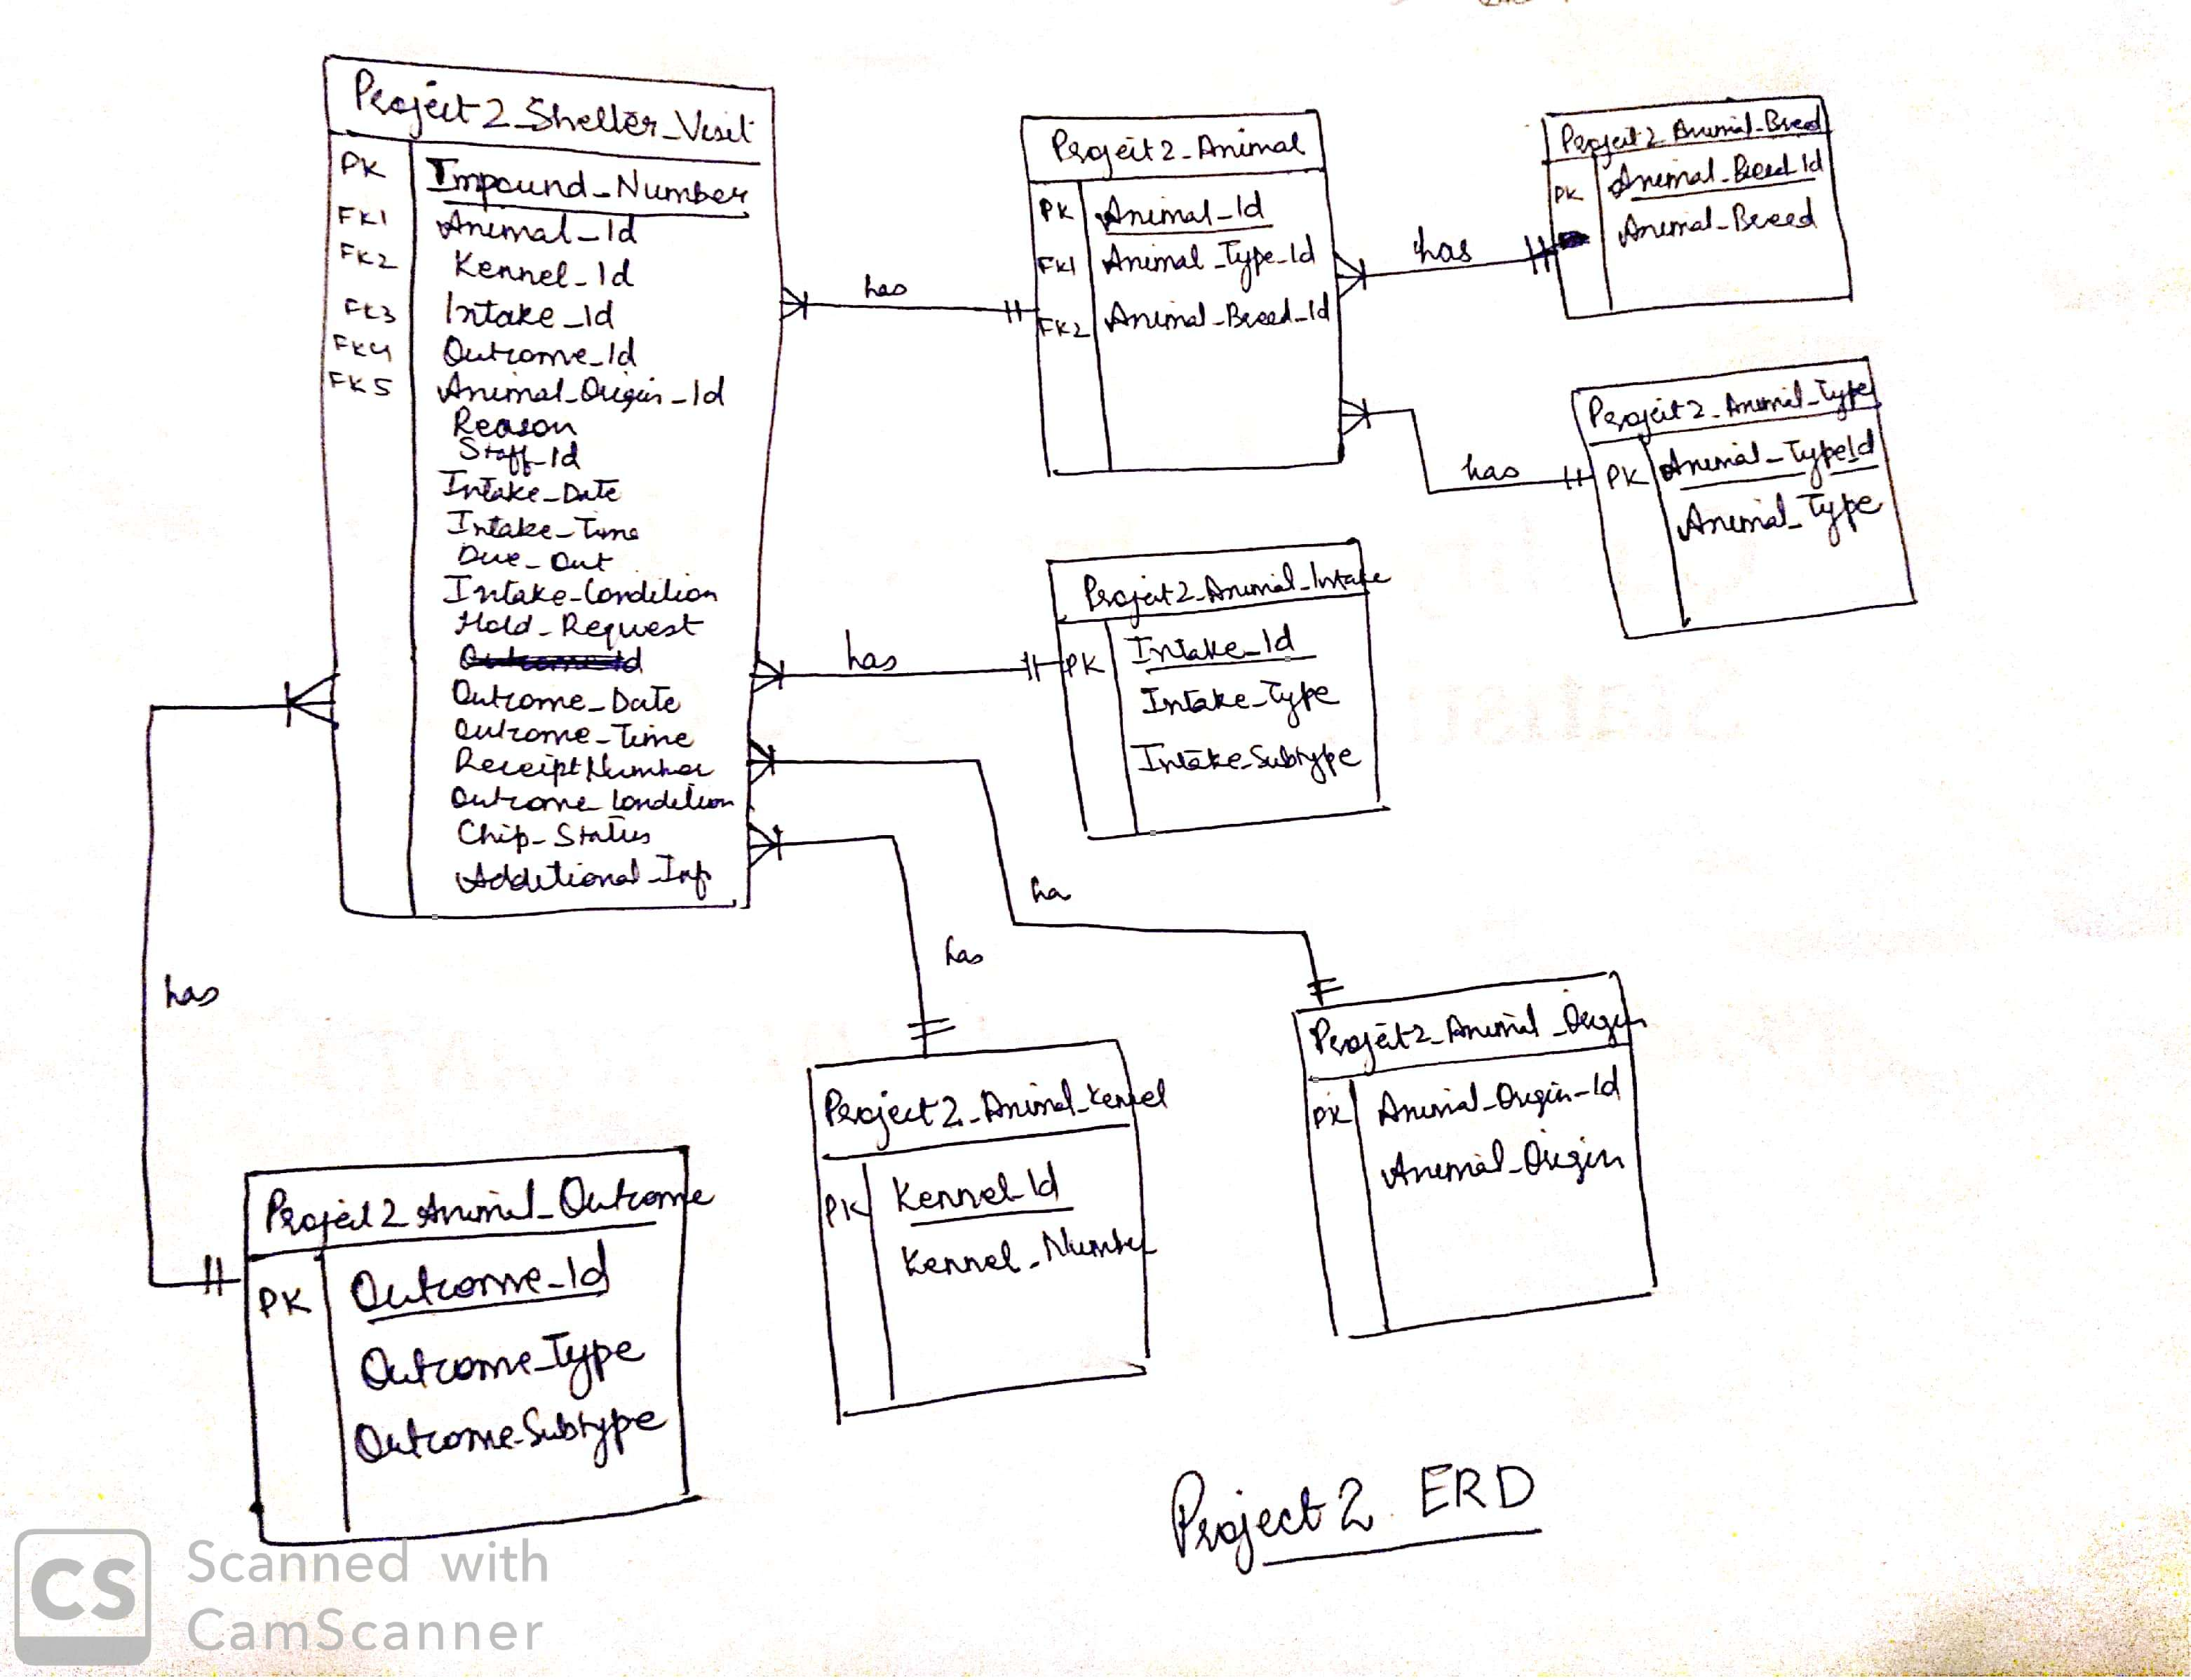 Project2_Shelter_Visit
PK Impound_Number
FK1 Animal_Id
FK2 Kennel_Id
FK3 Intake_Id
FK4 Outcome_Id
FK5 Animal_Origin_Id
Reason
Staff_Id
Intake_Date
Intake_Time
Due_Out
Intake_Condition
Hold_Request
Outcome_Date
Outcome_Time
Receipt Number
Outcome_Condition
Chip_Status
Additional_Inf
has
Project2_Animal
PK Animal_Id
FK1 Animal_Type_Id
FK2 Animal_Breed_Id
has
Project2_Animal_Breed
PK Animal_Breed_Id
Animal_Breed
has
Project2_Animal_Type
PK Animal_TypeId
Animal_Type
has
Project2_Animal_Intake
PK Intake_Id
Intake_Type
Intake_Subtype
ha
has
has
Project2_Animal_Origin
PK Animal_Origin_Id
Animal_Origin
Project2_Animal_Kennel
PK Kennel_Id
Kennel_Number
Project2_Animal_Outcome
PK Outcome_Id
Outcome_Type
Outcome_Subtype
Project2 ERD
CS Scanned with
CamScanner